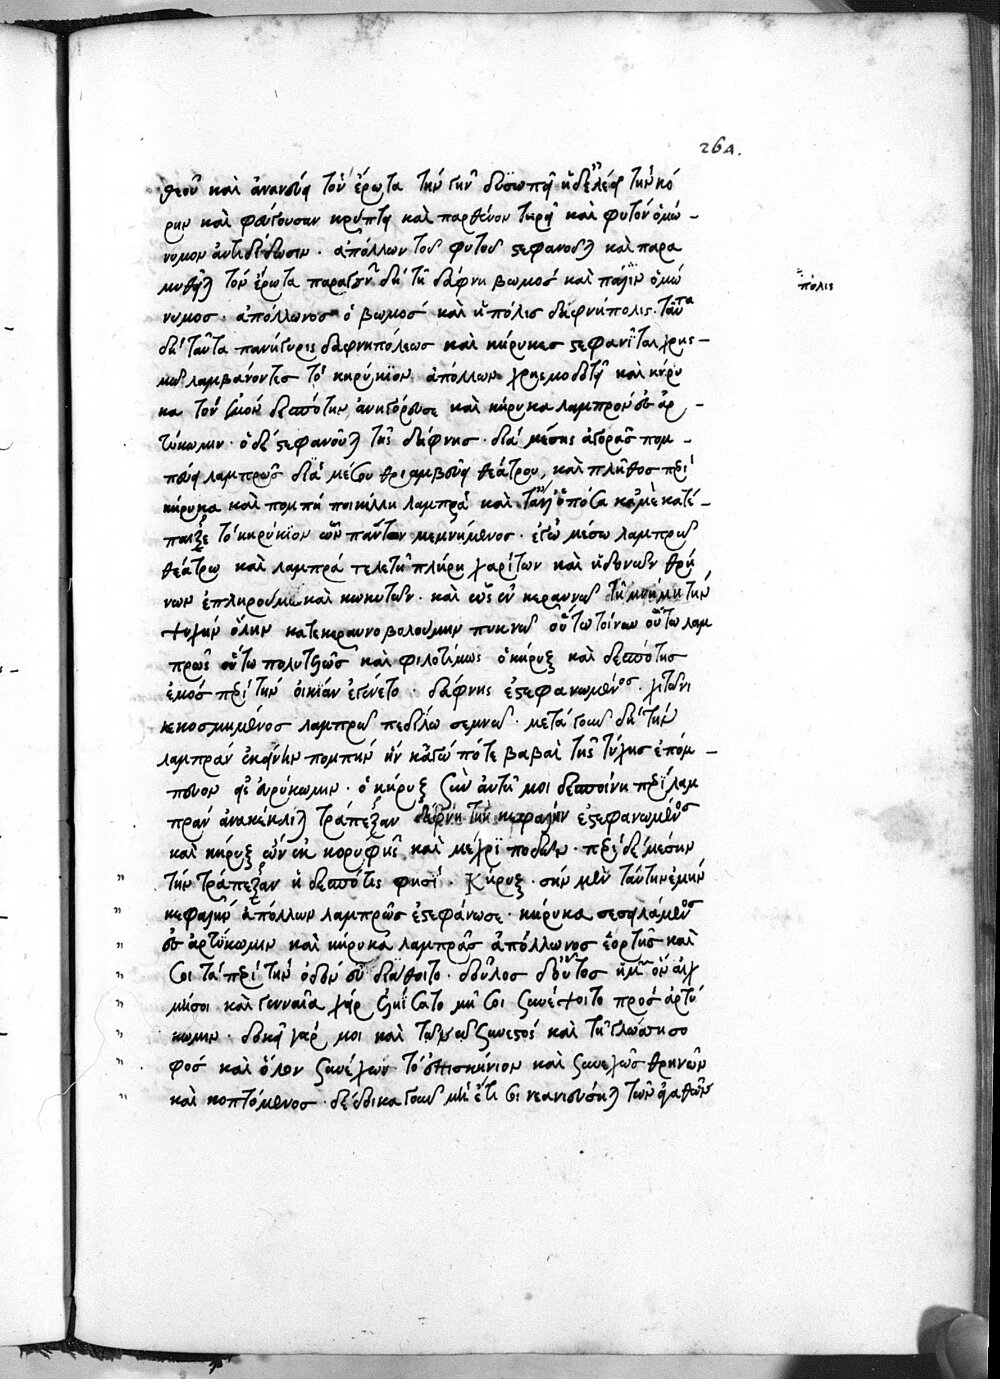 264.
θεοῦ καὶ ἀνανεύει τὸν ἔρωτα τὴν γῆν δυσωπεῖ ἡ δ' ἐλεεῖ τὴν κό
ρην καὶ φεύγουσαν κρύπτει καὶ παρθένον τηρεῖ καὶ φυτὸν ὁμώ-
νυμον ἀντιδίδωσιν. ἀπόλλων τοῦ φυτοῦ στεφανοῦται καὶ παρα
μυθεῖται τὸν ἔρωτα παρὰ γοῦν δὴ τῇ δάφνη βωμὸς καὶ πάλιν ὁμώ
πόλις
νυμος. ἀπόλλωνος ὁ βωμὸς καὶ ἡ πόλις δαφνήπολις. ταῦτα
διὰ ταῦτα πανήγυρις δαφνηπόλεως καὶ κήρυκες στεφανῖται χρης-
μῶ λαμβάνοντες τὸ κηρύκϊον ἀπόλλων χρησμοδοτεῖ καὶ κήρυ
κα τὸν ἐμὸν δεσπότην ἀνηγόρευσε καὶ κήρυκα λαμπρὸν ἐς ἀρ-
τύκωμιν. ὁ δὲ στεφανοῦται τῆς δάφνης. διὰ μέσης ἀγορᾶς πομ-
πεύει λαμπρῶς διὰ μέσου θριαμβεύει θεάτρου, καὶ πλῆθος περὶ
κήρυκα καὶ πομπὴ ποικίλη λαμπρὰ καὶ τἄλλ' ὁπόσα κἀμὲ κατέ-
παιξε τὸ κηρύκϊον ὧν πάντων μεμνημένος. ἐγὼ μέσω λαμπρῶ
θεάτρω καὶ λαμπρᾶ τελετῇ πλήρη χαρίτων καὶ ἡδονῶν θρή
νων ἐπληρούμην καὶ κωκυτῶν. καὶ ὡς ἐν κεραυνῶ τῇ μνήμη τὴν
ψυχὴν ὅλην κατεκεραυνοβολούμην πυκνῶ οὕτω τοίνυν οὕτω λαμ
πρῶς οὕτω πολυτελῶς καὶ φιλοτίμως ὁ κήρυξ καὶ δεσπότης
ἐμὸς περὶ τὴν οἰκίαν ἐγένετο. δάφνης ἐξεφανωμένος. χιτῶνι
κεκοσμημένος λαμπρῶ πεδίλω σεμνῶ. μετὰ γοῦν δὴ τὴν
λαμπρὰν ἐκείνην πομπὴν ἣν κἀγώ ποτε βαβαὶ τῆς τύχης ἐπόμ-
πευον ἐς εὐρύκωμιν. ὁ κήρυξ σὺν αὐτῇ μοι δεσποίνη περὶ λαμ
πρὰν ἀνακέκλιται τράπεζαν δάφνη τὴν κεφαλὴν ἐξεφανωμένος
καὶ κήρυξ ὢν ἐκ κορυφῆς καὶ μέχρϊ ποδῶν. περὶ δὲ μέσην
τὴν τράπεζαν ἡ δεσπότις φησί. Κήρυξ. σὴν μὲν ταύτην ἐμὴν
κεφαλὴν ἀπόλλων λαμπρῶς ἐξεφάνωσε. κήρυκα σεσταλμένος
ἐς ἀρτύκωμιν καὶ κήρυκα λαμπρᾶς ἀπόλλωνος ἑορτῆς καὶ
σοι τὰ περὶ τὴν ὁδὸν εὖ διάθοιτο. δοῦλος δ' οὗτος ἡμῖν ὃν αἰχ
μήσοι καὶ γενναῖα χεὶρ ἐληΐσατο μή σοι συνέψοιτο πρὸς ἀρτύ
κωμιν. δοκεῖ γάρ μοι καὶ τὸν νοῦν συνεστὸς καὶ τὴν γλῶτταν σο
φὸς καὶ ὅλον συνέχων τὸ ἐπισκήνιον καὶ συνεχῶς θρηνῶν
καὶ κοπτόμενος. δέδοικα γοῦν μὴ ἔτι σοι νεανιεύσηται τῶν ἀγαθῶν